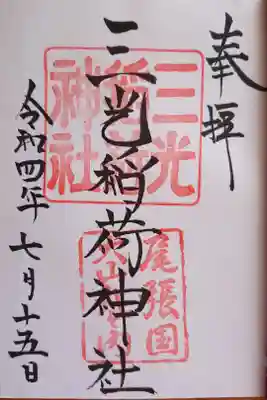 奉拝
三光稲荷神社
令和四年七月十五日
三光
稲荷
神社
尾張国